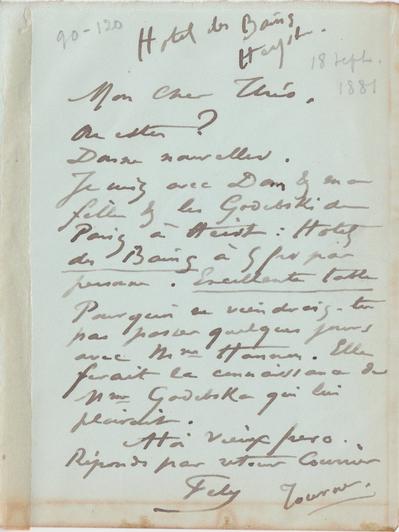 90-120
Hotel des Bains.
Heyst.
18 Sept.
1881
Mon cher Théo,
Ou es tu ?
Donne nouvelles.
Je suis avec Dom & ma
fille & les Godebski de
Paris à Heist : Hotel
des Bains à 9 frs par
personne. Excellente table
Pourquoi ne viendrais-tu
pas passer quelques jours
avec Mme Hannon. Elle
ferait la connaissance de
Mme Godebska qui lui
plairait.
A toi vieux frero.
Réponds par retour Courrier
Fely